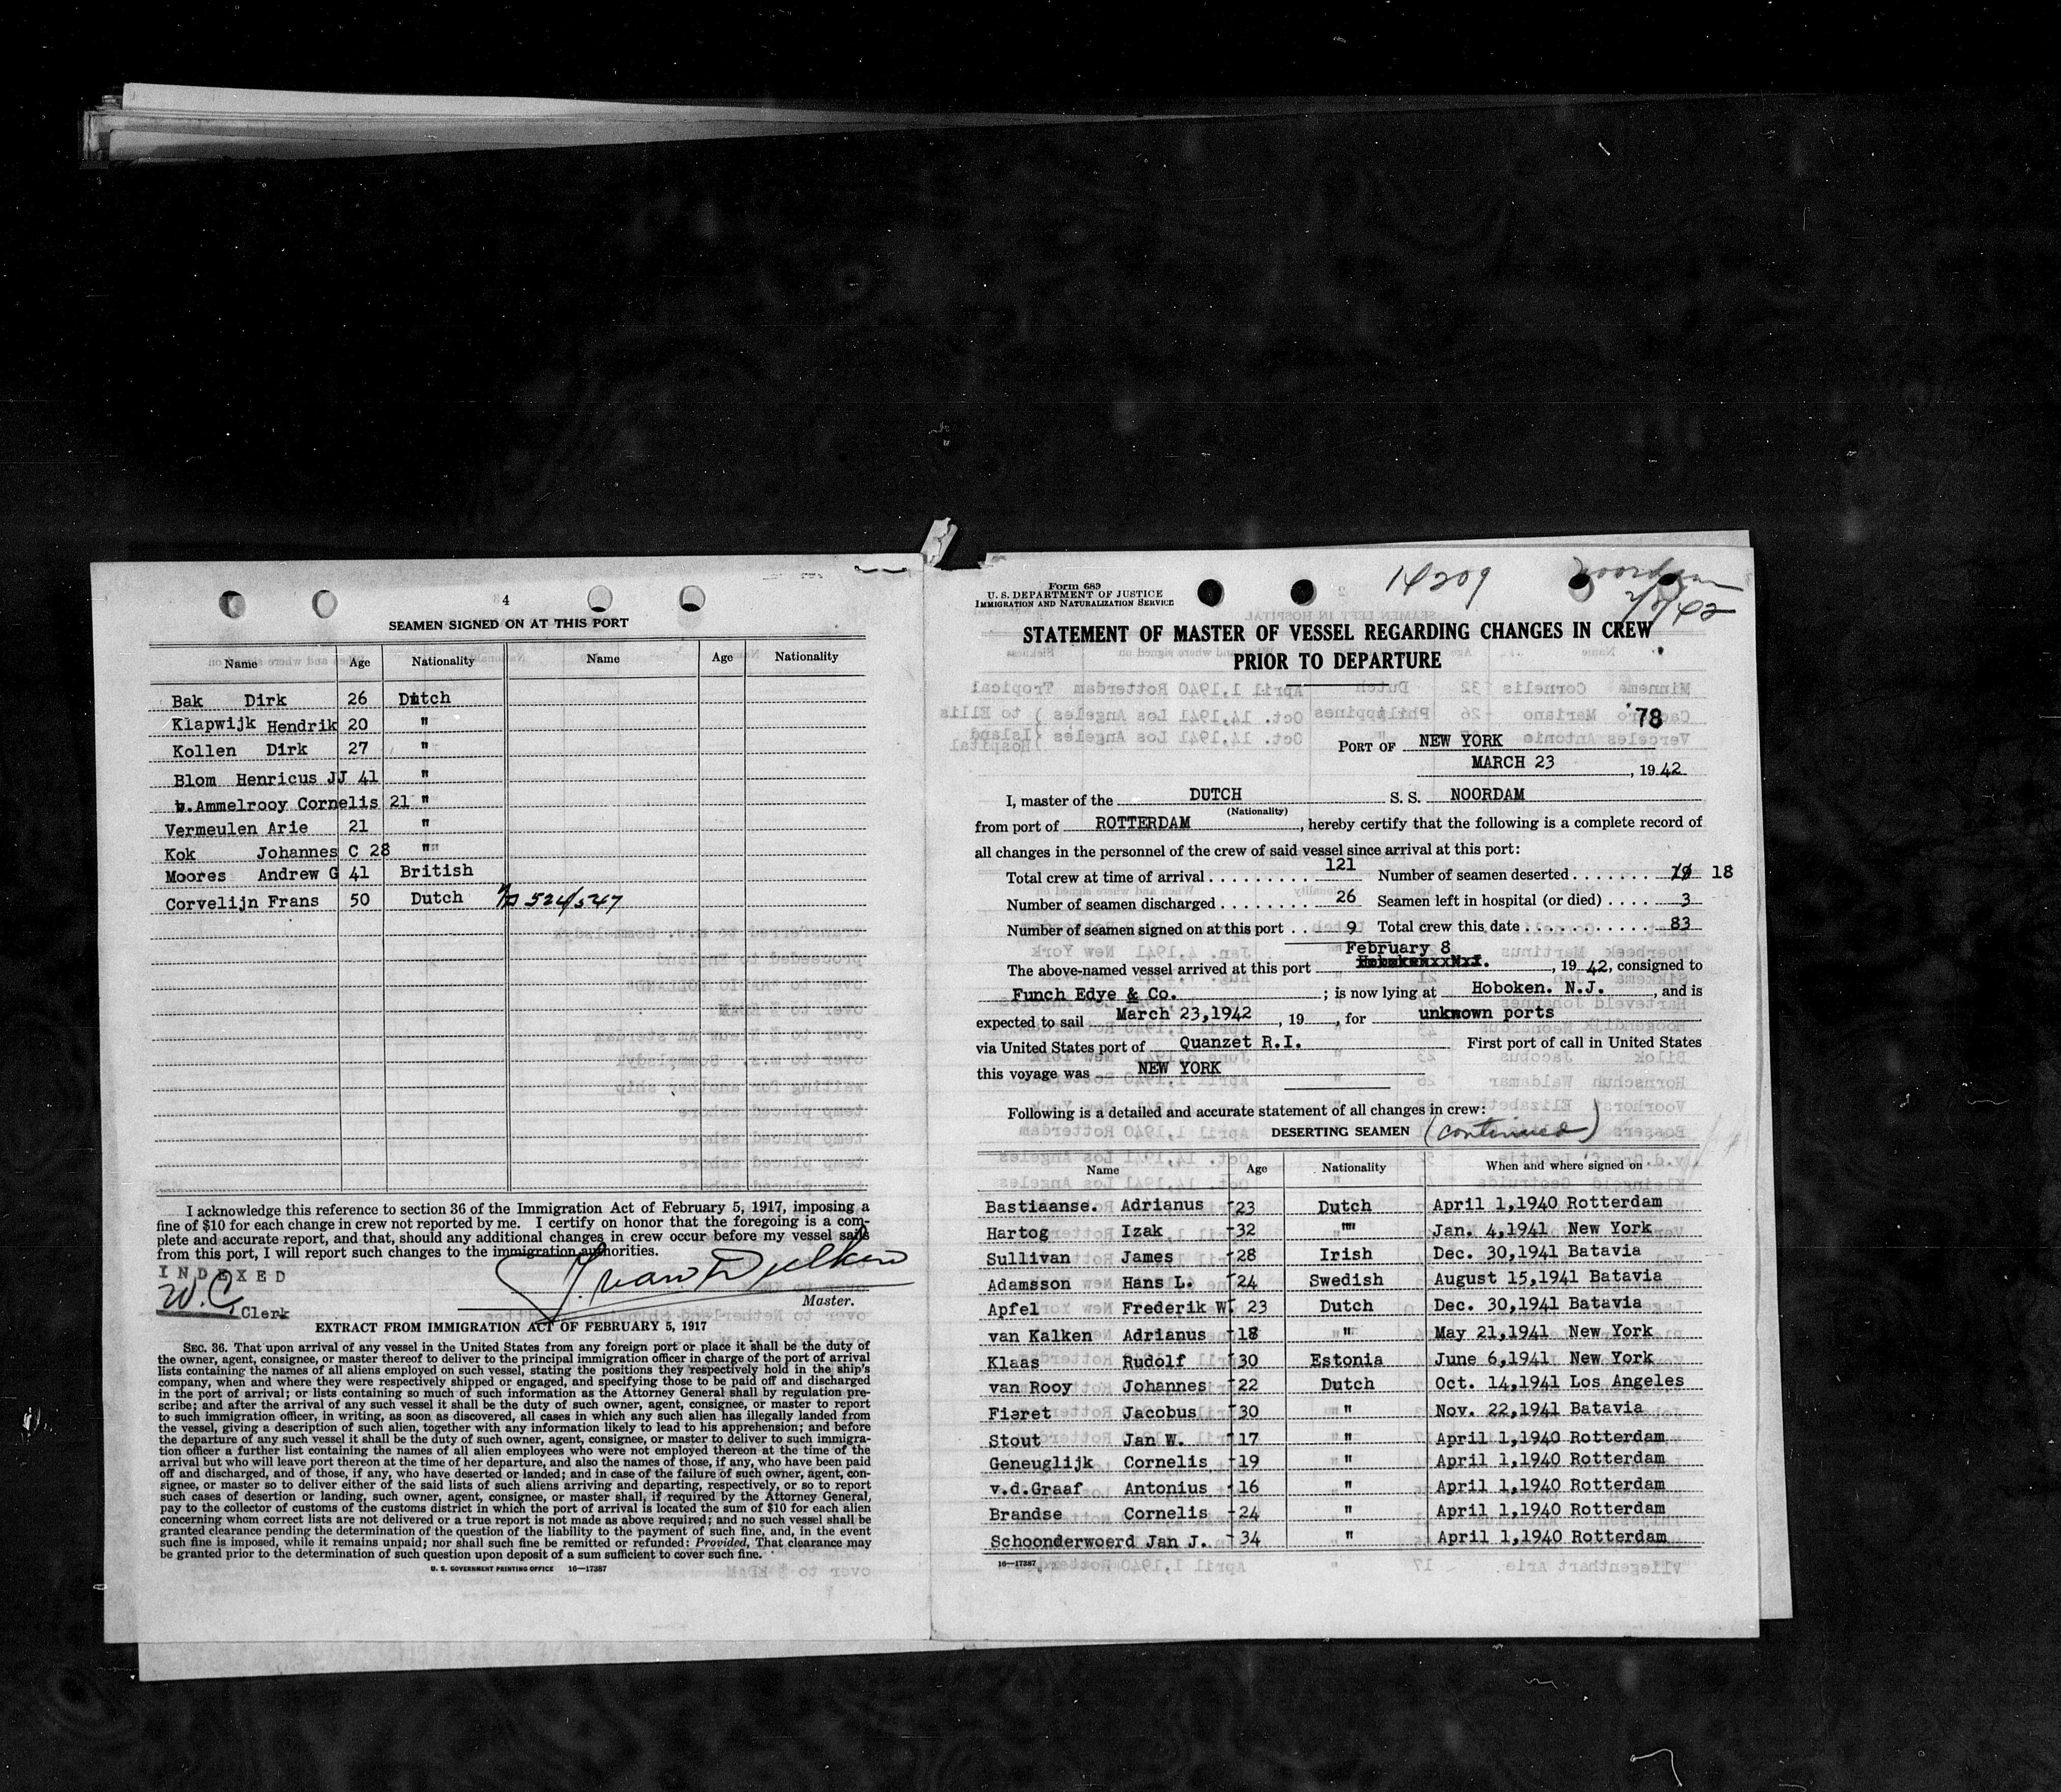 4
SEAMEN SIGNED ON AT THIS PORT
Name Age Nationality Name Age Nationality
Bak Dirk 26 Dutch
Klapwijk Hendrik 20 "
Kollen Dirk 27 "
Blom Henricus JJ 41 "
v.Ammelrooy Cornelis 21 "
Vermeulen Arie 21 "
Kok Johannes C 28 "
Moores Andrew G 41 British
Corvelijn Frans 50 Dutch 524/547
I acknowledge this reference to section 36 of the Immigration Act of February 5, 1917, imposing a
fine of $10 for each change in crew not reported by me. I certify on honor that the foregoing is a com-
plete and accurate report, and that, should any additional changes in crew occur before my vessel sails
from this port, I will report such changes to the immigration authorities.
INDEXED
W.C. Clerk
J. van Dulken
Master.
EXTRACT FROM IMMIGRATION ACT OF FEBRUARY 5, 1917
SEC. 36. That upon arrival of any vessel in the United States from any foreign port or place it shall be the duty of
the owner, agent, consignee, or master thereof to deliver to the principal immigration officer in charge of the port of arrival
lists containing the names of all aliens employed on such vessel, stating the positions they respectively hold in the ship's
company, when and where they were respectively shipped or engaged, and specifying those to be paid off and discharged
in the port of arrival; or lists containing so much of such information as the Attorney General shall by regulation pre-
scribe; and after the arrival of any such vessel it shall be the duty of such owner, agent, consignee, or master to report
to such immigration officer, in writing, as soon as discovered, all cases in which any such alien has illegally landed from
the vessel, giving a description of such alien, together with any information likely to lead to his apprehension; and before
the departure of any such vessel it shall be the duty of such owner, agent, consignee, or master to deliver to such immigra-
tion officer a further list containing the names of all alien employees who were not employed thereon at the time of the
arrival but who will leave port thereon at the time of her departure, and also the names of those, if any, who have been paid
off and discharged, and of those, if any, who have deserted or landed; and in case of the failure of such owner, agent, con-
signee, or master so to deliver either of the said lists of such aliens arriving and departing, respectively, or so to report
such cases of desertion or landing, such owner, agent, consignee, or master shall, if required by the Attorney General,
pay to the collector of customs of the customs district in which the port of arrival is located the sum of $10 for each alien
concerning whom correct lists are not delivered or a true report is not made as above required; and no such vessel shall be
granted clearance pending the determination of the question of the liability to the payment of such fine, and, in the event
such fine is imposed, while it remains unpaid; nor shall such fine be remitted or refunded: Provided, That clearance may
be granted prior to the determination of such question upon deposit of a sum sufficient to cover such fine.
U. S. GOVERNMENT PRINTING OFFICE 16—17387
Form 689
U. S. DEPARTMENT OF JUSTICE
IMMIGRATION AND NATURALIZATION SERVICE
14209
Noordam
2/8/42
STATEMENT OF MASTER OF VESSEL REGARDING CHANGES IN CREW
PRIOR TO DEPARTURE
78
PORT OF NEW YORK
MARCH 23, 1942
I, master of the DUTCH S. S. NOORDAM
(Nationality)
from port of ROTTERDAM, hereby certify that the following is a complete record of
all changes in the personnel of the crew of said vessel since arrival at this port:
Total crew at time of arrival 121 Number of seamen deserted 18
Number of seamen discharged 26 Seamen left in hospital (or died) 3
Number of seamen signed on at this port 9 Total crew this date 83
February 8
The above-named vessel arrived at this port Hoboken N.J., 1942, consigned to
Funch Edye & Co.; is now lying at Hoboken. N.J., and is
expected to sail March 23,1942, 19, for unknown ports
via United States port of Quanzet R.I. First port of call in United States
this voyage was NEW YORK
Following is a detailed and accurate statement of all changes in crew:
DESERTING SEAMEN (continued)
Name Age Nationality When and where signed on
Bastiaanse. Adrianus 23 Dutch April 1,1940 Rotterdam
Hartog Izak 32 "" Jan. 4,1941 New York
Sullivan James 28 Irish Dec. 30,1941 Batavia
Adamsson Hans L. 24 Swedish August 15,1941 Batavia
Apfel Frederik W. 23 Dutch Dec. 30,1941 Batavia
van Kalken Adrianus 18 " May 21,1941 New York
Klaas Rudolf 30 Estonia June 6,1941 New York
van Rooy Johannes 22 Dutch Oct. 14,1941 Los Angeles
Fieret Jacobus 30 " Nov. 22,1941 Batavia
Stout Jan W. 17 " April 1,1940 Rotterdam
Geneuglijk Cornelis 19 " April 1,1940 Rotterdam
v.d.Graaf Antonius 16 " April 1,1940 Rotterdam
Brandse Cornelis 24 " April 1,1940 Rotterdam
Schoonderwoerd Jan J. 34 " April 1,1940 Rotterdam
16—17387